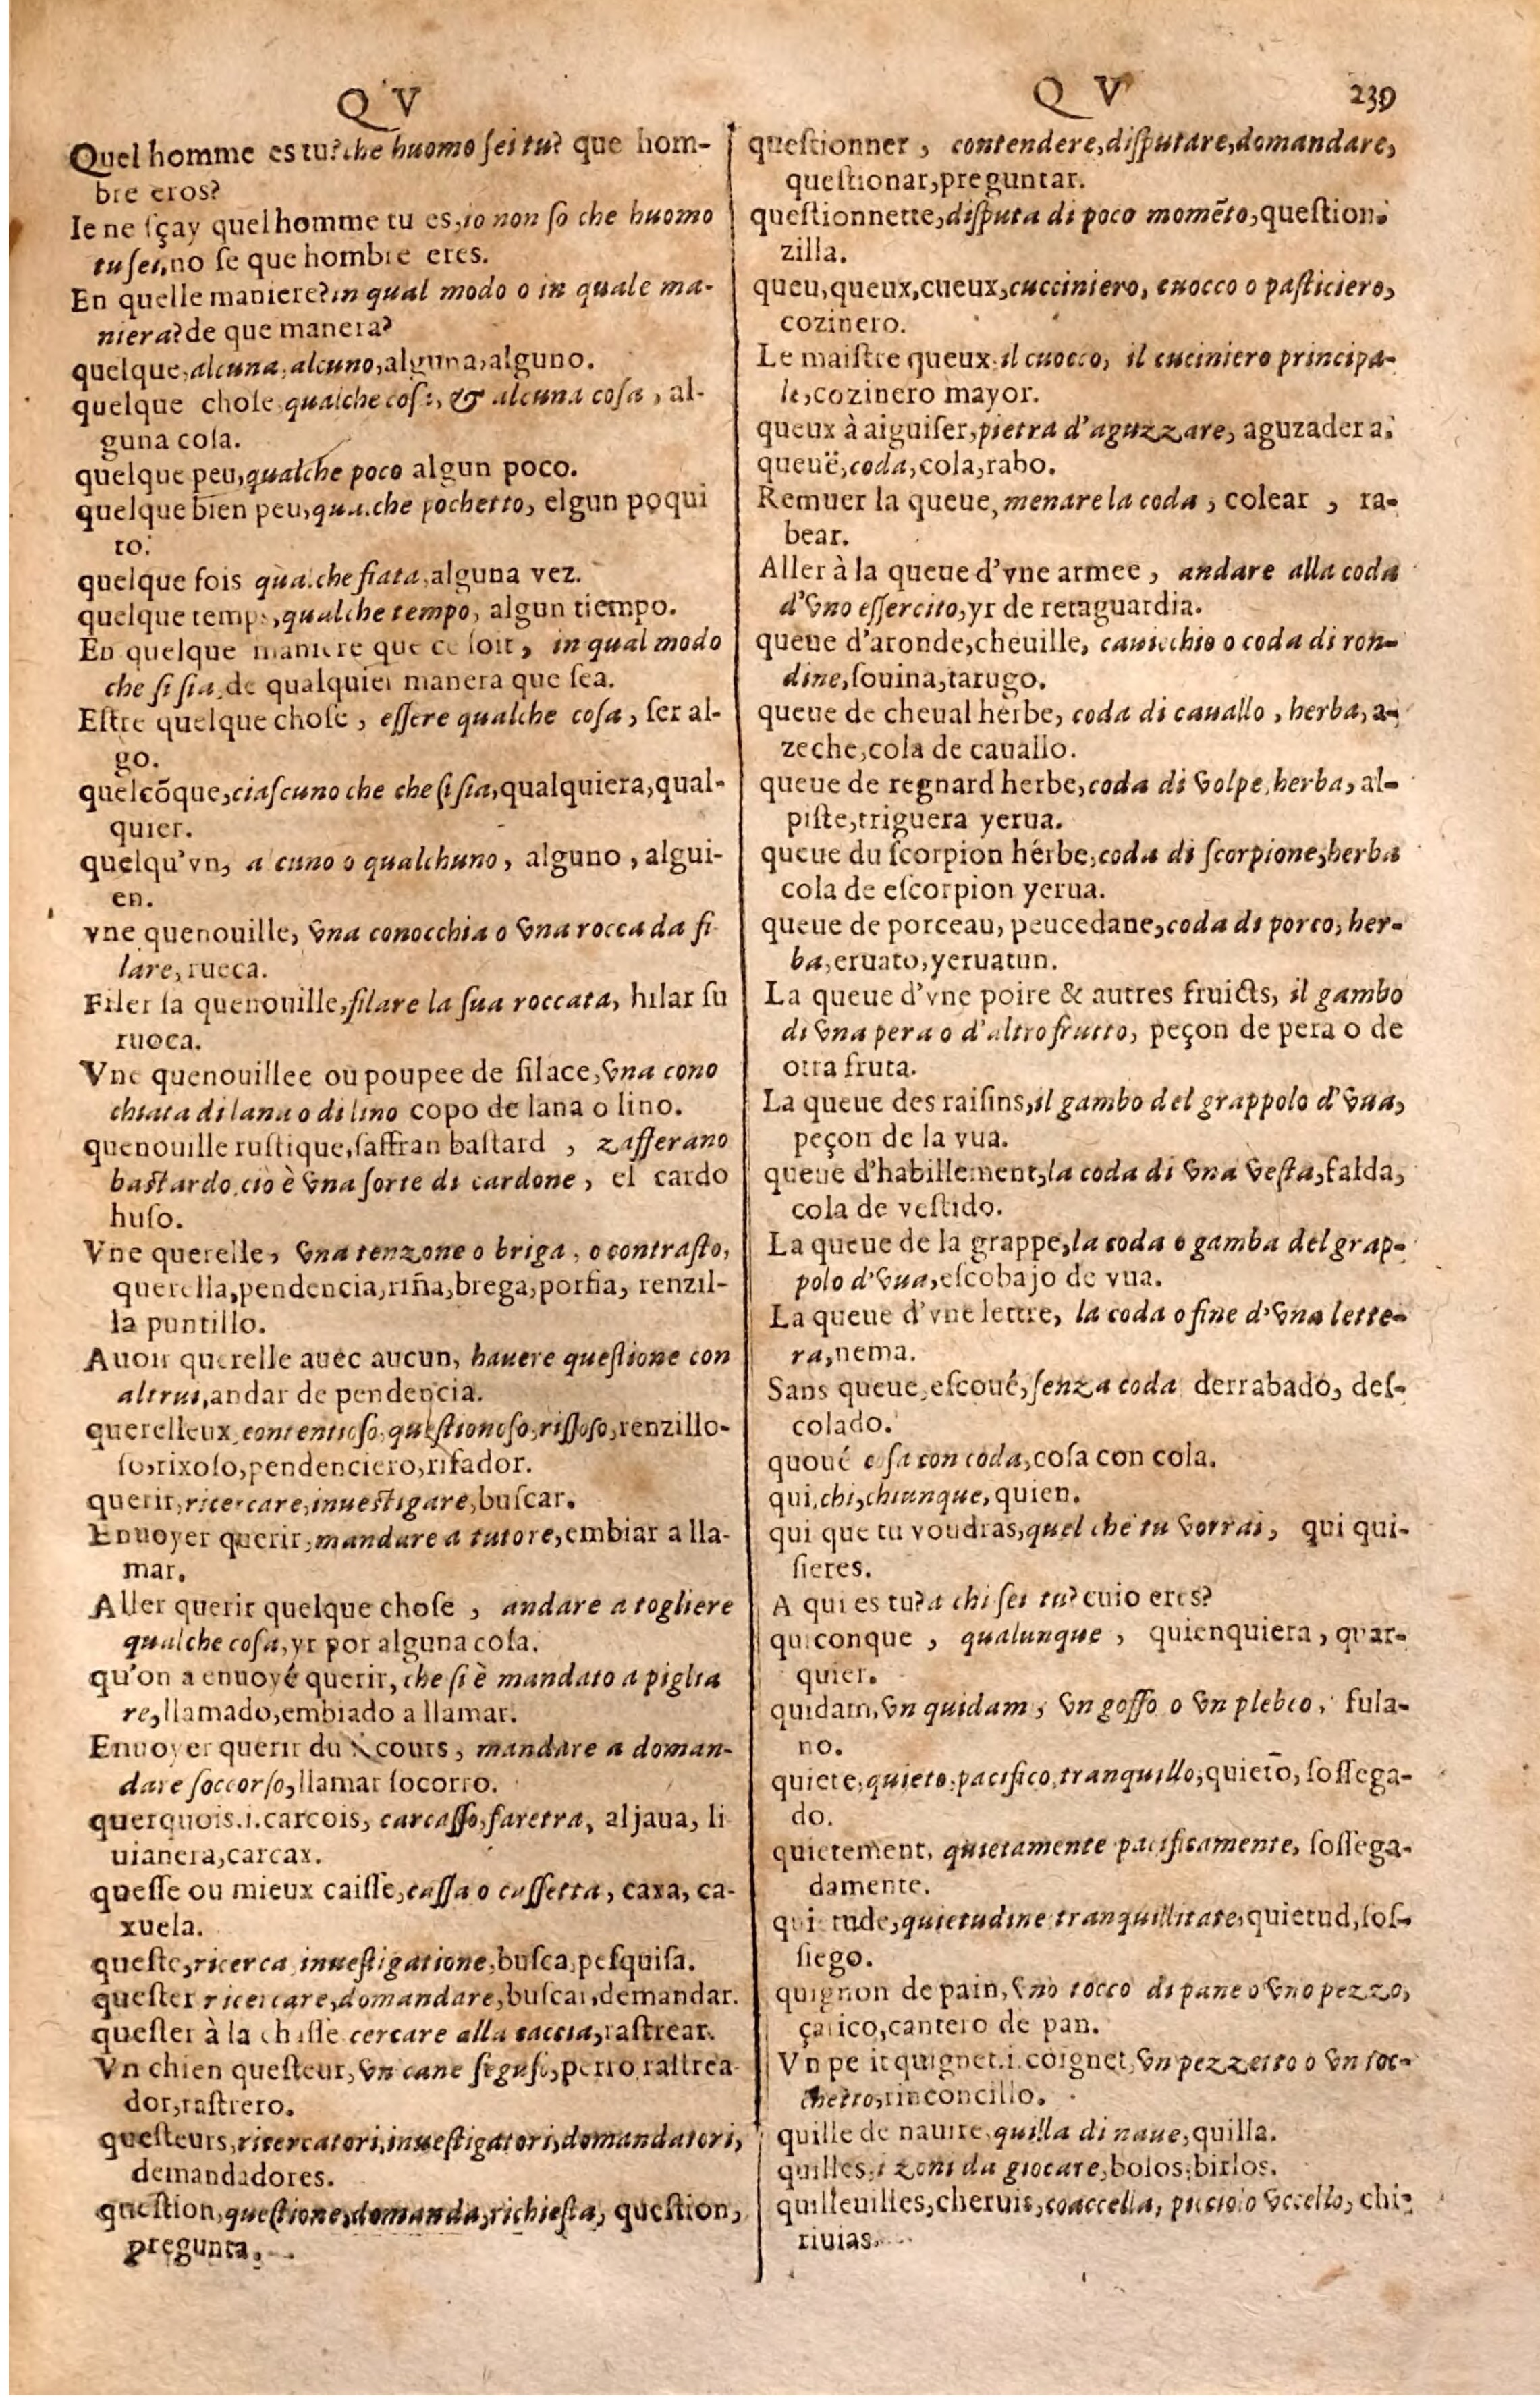 Q V
Quel homme es tu? che huomo sei tu? que hom-
bre eros?
Ie ne sçay quel homme tu es, io non so che huomo
tu sei, no se que hombre eres.
En quelle maniere? in qual modo o in quale ma-
niera? de que manera?
quelque, alcuna, alcuno, alguna, alguno.
quelque chose, qualche cosa, & alcuna cosa, al-
guna cosa.
quelque peu, qualche poco algun poco.
quelque bien peu, qualche pochetto, elgun poqui
to.
quelque fois qualche fiata, alguna vez.
quelque temps, qualche tempo, algun tiempo.
En quelque maniere que ce soit, in qual modo
che si sia, de qualquier manera que sea.
Estre quelque chose, essere qualche cosa, ser al-
go.
quelcõque, ciascuno che che si sia, qualquiera, qual-
quier.
quelqu'vn, a cuno o qualchuno, alguno, algui-
en.
vne quenouille, vna conocchia o vna rocca da fi
lare, rueca.
Filer sa quenouille, filare la sua roccata, hilar su
ruoca.
Vne quenouillee ou poupee de filace, vna cono
chiata di lana o di lino copo de lana o lino.
quenouille rustique, saffran bastard, zafferano
bastardo, ciò è vna sorte di cardone, el cardo
huso.
Vne querelle, vna tenzone o briga, o contrasto,
querella, pendencia, riña, brega, porfia, renzil-
la puntillo.
Auoir querelle auec aucun, hauere questione con
altrui, andar de pendencia.
querelleux, contentioso, questionoso, rissoso, renzillo-
so, rixoso, pendenciero, rifador.
querir, ricercare, inuestigare, buscar.
Enuoyer querir, mandare a tutore, embiar a lla-
mar.
Aller querir quelque chose, andare a togliere
qualche cosa, yr por alguna cosa.
qu'on a enuoyé querir, che si è mandato a piglia
re, llamado, embiado a llamar.
Enuoyer querir du cours, mandare a doman-
dare soccorso, llamar socorro.
querquois.i.carcois, carcasso, faretra, aljaua, li
uianera, carcax.
quesse ou mieux caisse, cassa o cassetta, caxa, ca-
xuela.
queste, ricerca, inuestigatione, busca, pesquisa.
quester ricercare, domandare, buscar, demandar.
quester à la chasse cercare alla caccia, rastrear.
Vn chien questeur, vn cane seguso, perro rastrea
dor, rastrero.
questeurs, ricercatori, inuestigatori, domandatori,
demandadores.
question, questione, domanda, richiesta, question,
pregunta.
Q V 239
questionner, contendere, disputare, domandare,
questionar, preguntar.
questionnette, disputa di poco momẽto, question-
zilla.
queu, queux, cueux, cucciniero, cuocco o pasticiero,
cozinero.
Le maistre queux, il cuocco, il cuciniero principa-
le, cozinero mayor.
queux à aiguiser, pietra d'aguzzare, aguzadera.
queuë, coda, cola, rabo.
Remuer la queue, menare la coda, colear, ra-
bear.
Aller à la queue d'vne armee, andare alla coda
d'vno essercito, yr de retaguardia.
queue d'aronde, cheuille, cauicchio o coda di ron-
dine, souina, tarugo.
queue de cheual herbe, coda di cauallo, herba, a-
zeche, cola de cauallo.
queue de regnard herbe, coda di volpe, herba, al-
piste, triguera yerua.
queue du scorpion herbe, coda di scorpione, herba
cola de escorpion yerua.
queue de porceau, peucedane, coda di porco, her-
ba, eruato, yeruatun.
La queue d'vne poire & autres fruicts, il gambo
di vna pera o d'altro frutto, peçon de pera o de
otra fruta.
La queue des raisins, il gambo del grappolo d'vua,
peçon de la vua.
queue d'habillement, la coda di vna vesta, falda,
cola de vestido.
La queue de la grappe, la coda o gamba del grap-
polo d'vua, escobajo de vua.
La queue d'vne lettre, la coda o fine d'vna lette-
ra, nema.
Sans queue, escoué, senza coda derrabado, des-
colado.
quoué cosa con coda, cosa con cola.
qui, chi, chiunque, quien.
qui que tu voudras, quel che tu vorrai, qui qui-
sieres.
A qui es tu? a chi sei tu? cuio eres?
quiconque, qualunque, quienquiera, quar-
quier.
quidam, vn quidam, vn goffo o vn plebeo, fula-
no.
quiete, quieto, pacifico, tranquillo, quieto, sossega-
do.
quietement, quietamente pacificamente, sossega-
damente.
quietude, quietudine tranquillitate, quietud, sos-
siego.
quignon de pain, vno tocco di pane o vno pezzo,
çatico, cantero de pan.
Vn petit quignet.i.coignet, vn pezzetto o vn toc-
chetto, rinconcillo.
quille de nauire, quilla di naue, quilla.
quilles, i zoni da giocare, bolos, birlos.
quilleuilles, cheruis, coaccella, picciolo vccello, chi-
riuias.